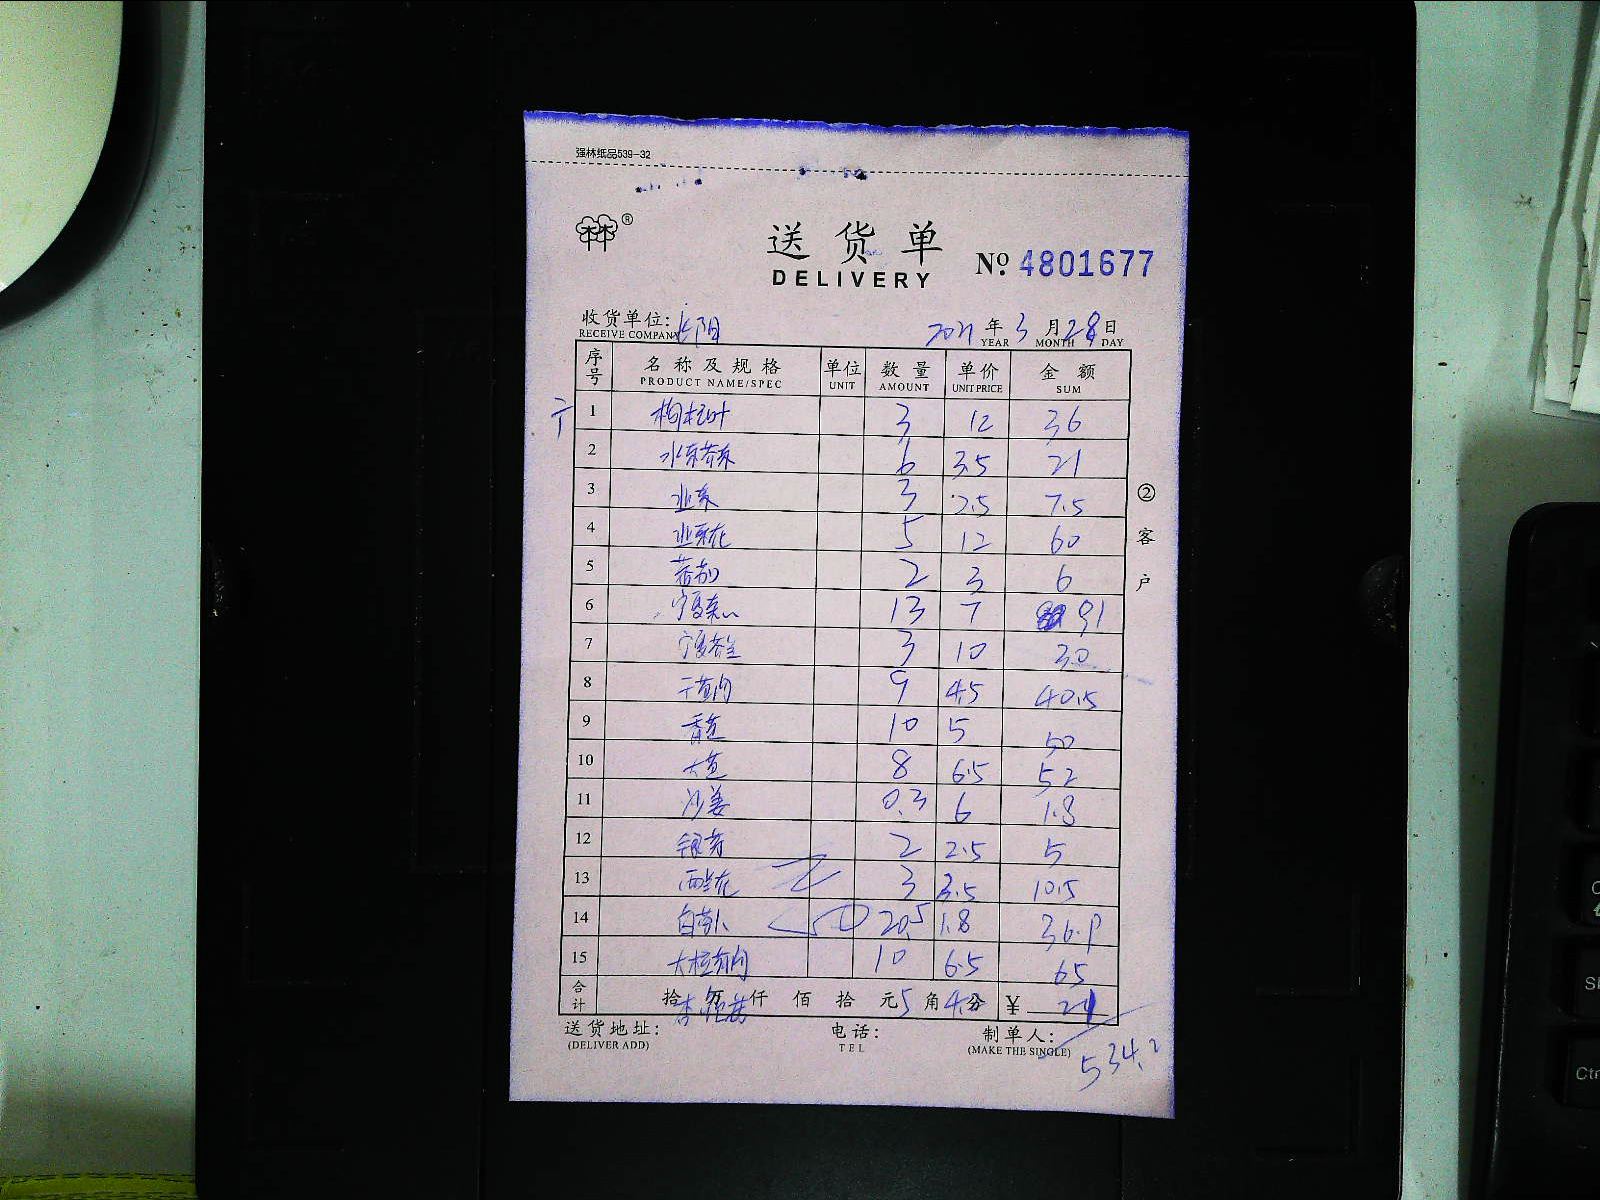 强林纸品539-32
林林®
送货单
DELIVERY
№ 4801677
收货单位: 长阳
RECEIVE COMPANY
2021 年 3 月 28 日
YEAR MONTH DAY
序号 名称及规格 单位 数量 单价 金额
PRODUCT NAME/SPEC UNIT AMOUNT UNIT PRICE SUM
1 枸杞叶 3 12 36
2 水东芥菜 6 3.5 21
3 韭菜 3 2.5 7.5
4 韭菜花 5 12 60
5 2 3 6
6 宁夏菜心 13 7 91
7 宁夏芥兰 3 10 30
8 干葱肉 9 4.5 40.5
9 香葱 10 5 50
10 大葱 8 6.5 52
11 沙姜 0.3 6 1.8
12 银芽 2 2.5 5
13 西兰花 3 3.5 10.5
14 白萝卜 20.5 1.8 36.9
15 大粒蒜肉 10 6.5 65
合计 拾 万 仟 佰 拾 元 5 角 4.8 分 ¥ 21
送货地址:
(DELIVER ADD)
电话:
TEL
制单人:
(MAKE THE SINGLE)
534.2
②客户